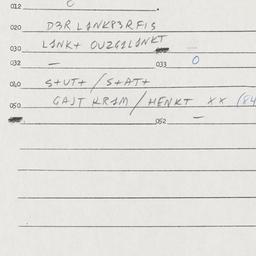 012 0
020 D3R L1NKP3RFIS
030 L1NK+ OUZG1L1NKT
032 — 033 0
040 S+UT+ / S+AT+
050 GAJT KR1M / HENKT XX (84
052 —